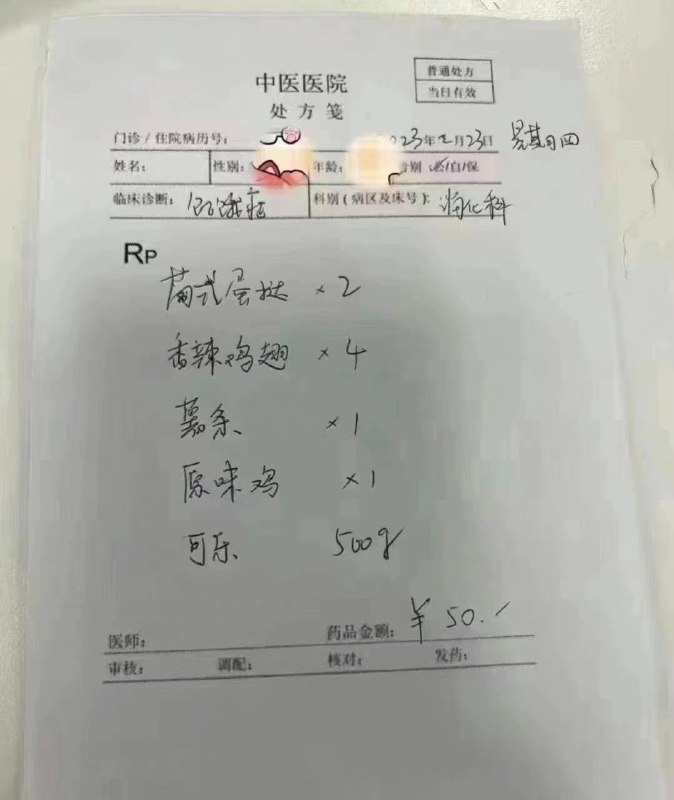 普通处方
当日有效
中医医院
处方笺
门诊/住院病历号： 023年2月23日 星期四
姓名： 性别： 年龄： 别 公/自/保
临床诊断： 饥饿症 科别(病区及床号)： 消化科
RP
葡式蛋挞 ×2
香辣鸡翅 ×4
薯条 ×1
原味鸡 ×1
可乐 500g
医师： 药品金额： ¥50.
审核： 调配： 核对： 发药：